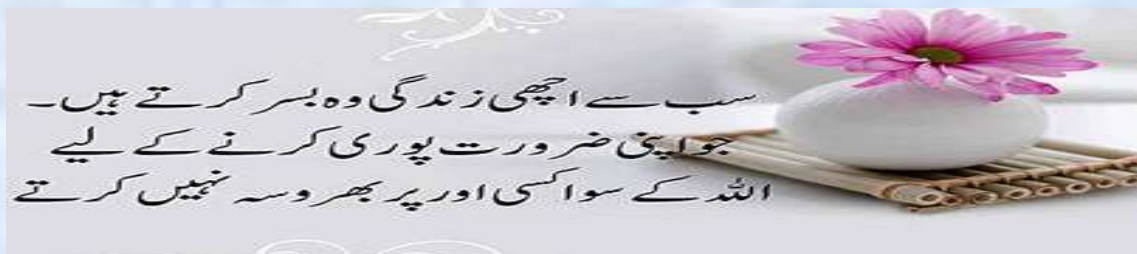 سب سے اچھی زندگی وہ بسر کرتے ہیں۔
جو اپنی ضرورت پوری کرنے کے لیے
اللہ کے سوا کسی اور پر بھروسہ نہیں کرتے